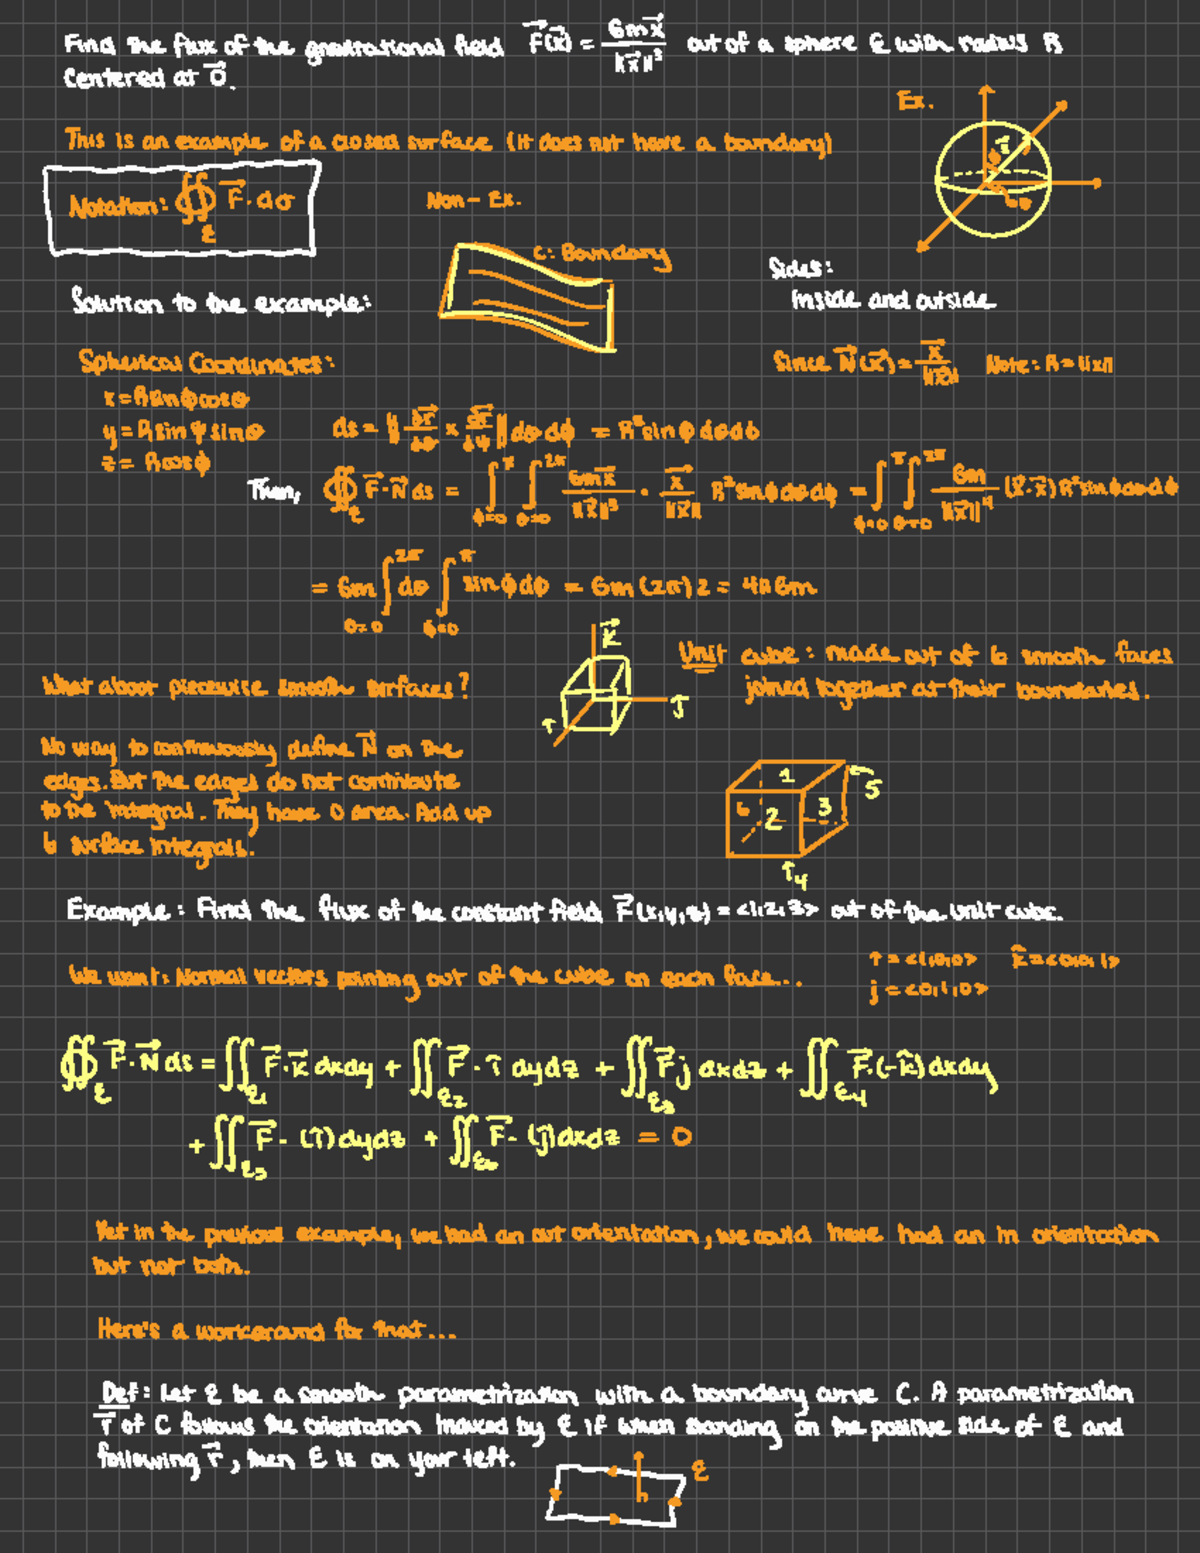 Find the flux of the gravitational field F⃗(x⃗) = Gmx⃗ / ||x⃗||³ out of a sphere Σ with radius R
Centered at 0⃗.
Ex.
This is an example of a closed surface (it does not have a boundary)
Notation: ∯_Σ F⃗·dσ
Non-Ex.
C: Boundary
Sides:
Inside and outside
Solution to the example:
Spherical Coordinates:
Since N⃗(x⃗) = x⃗/||x⃗|| Note: R = ||x||
x = R sin φ cos θ
y = R sin φ sin θ
z = R cos φ
ds = ||∂r⃗/∂θ × ∂r⃗/∂φ|| dθ dφ = R² sin φ dθ dφ
Then, ∯_Σ F⃗·N⃗ ds = ∫_{φ=0}^{π} ∫_{θ=0}^{2π} Gmx⃗/||x⃗||³ · x⃗/||x⃗|| R² sin φ dθ dφ = ∫_{φ=0}^{π} ∫_{θ=0}^{2π} Gm/||x⃗||⁴ (x⃗·x⃗) R² sin φ dθ dφ
= Gm ∫_{θ=0}^{2π} dθ ∫_{φ=0}^{π} sin φ dφ = Gm (2π) 2 = 4π Gm
k⃗
j
î
Unit cube: made out of 6 smooth faces
joined together at their boundaries.
What about piecewise smooth surfaces?
No way to continuously define N⃗ on the
edges. But the edges do not contribute
to the integral. They have 0 area. Add up
6 surface integrals.
1
5
6 2 3
↑4
Example: Find the flux of the constant field F⃗(x,y,z) = <1,2,3> out of the unit cube.
We want: Normal vectors pointing out of the cube on each face...
î = <1,0,0> k̂ = <0,0,1>
j = <0,1,0>
∯_Σ F⃗·N⃗ ds = ∬_Σ1 F⃗·k⃗ dxdy + ∬_Σ2 F⃗·î dydz + ∬_Σ3 F⃗ j dxdz + ∬_Σ4 F⃗·(-k̂) dxdy
+ ∬_Σ5 F⃗ - (î) dydz + ∬_Σ6 F⃗ - (j) dxdz = 0
Yet in the previous example, we had an out orientation, we could have had an in orientation
but not both.
Here's a workaround for that...
Def: Let Σ be a smooth parametrization with a boundary curve C. A parametrization
r⃗ of C follows the orientation induced by Σ if when standing on the positive side of Σ and
following r⃗, then Σ is on your left.
Σ
n